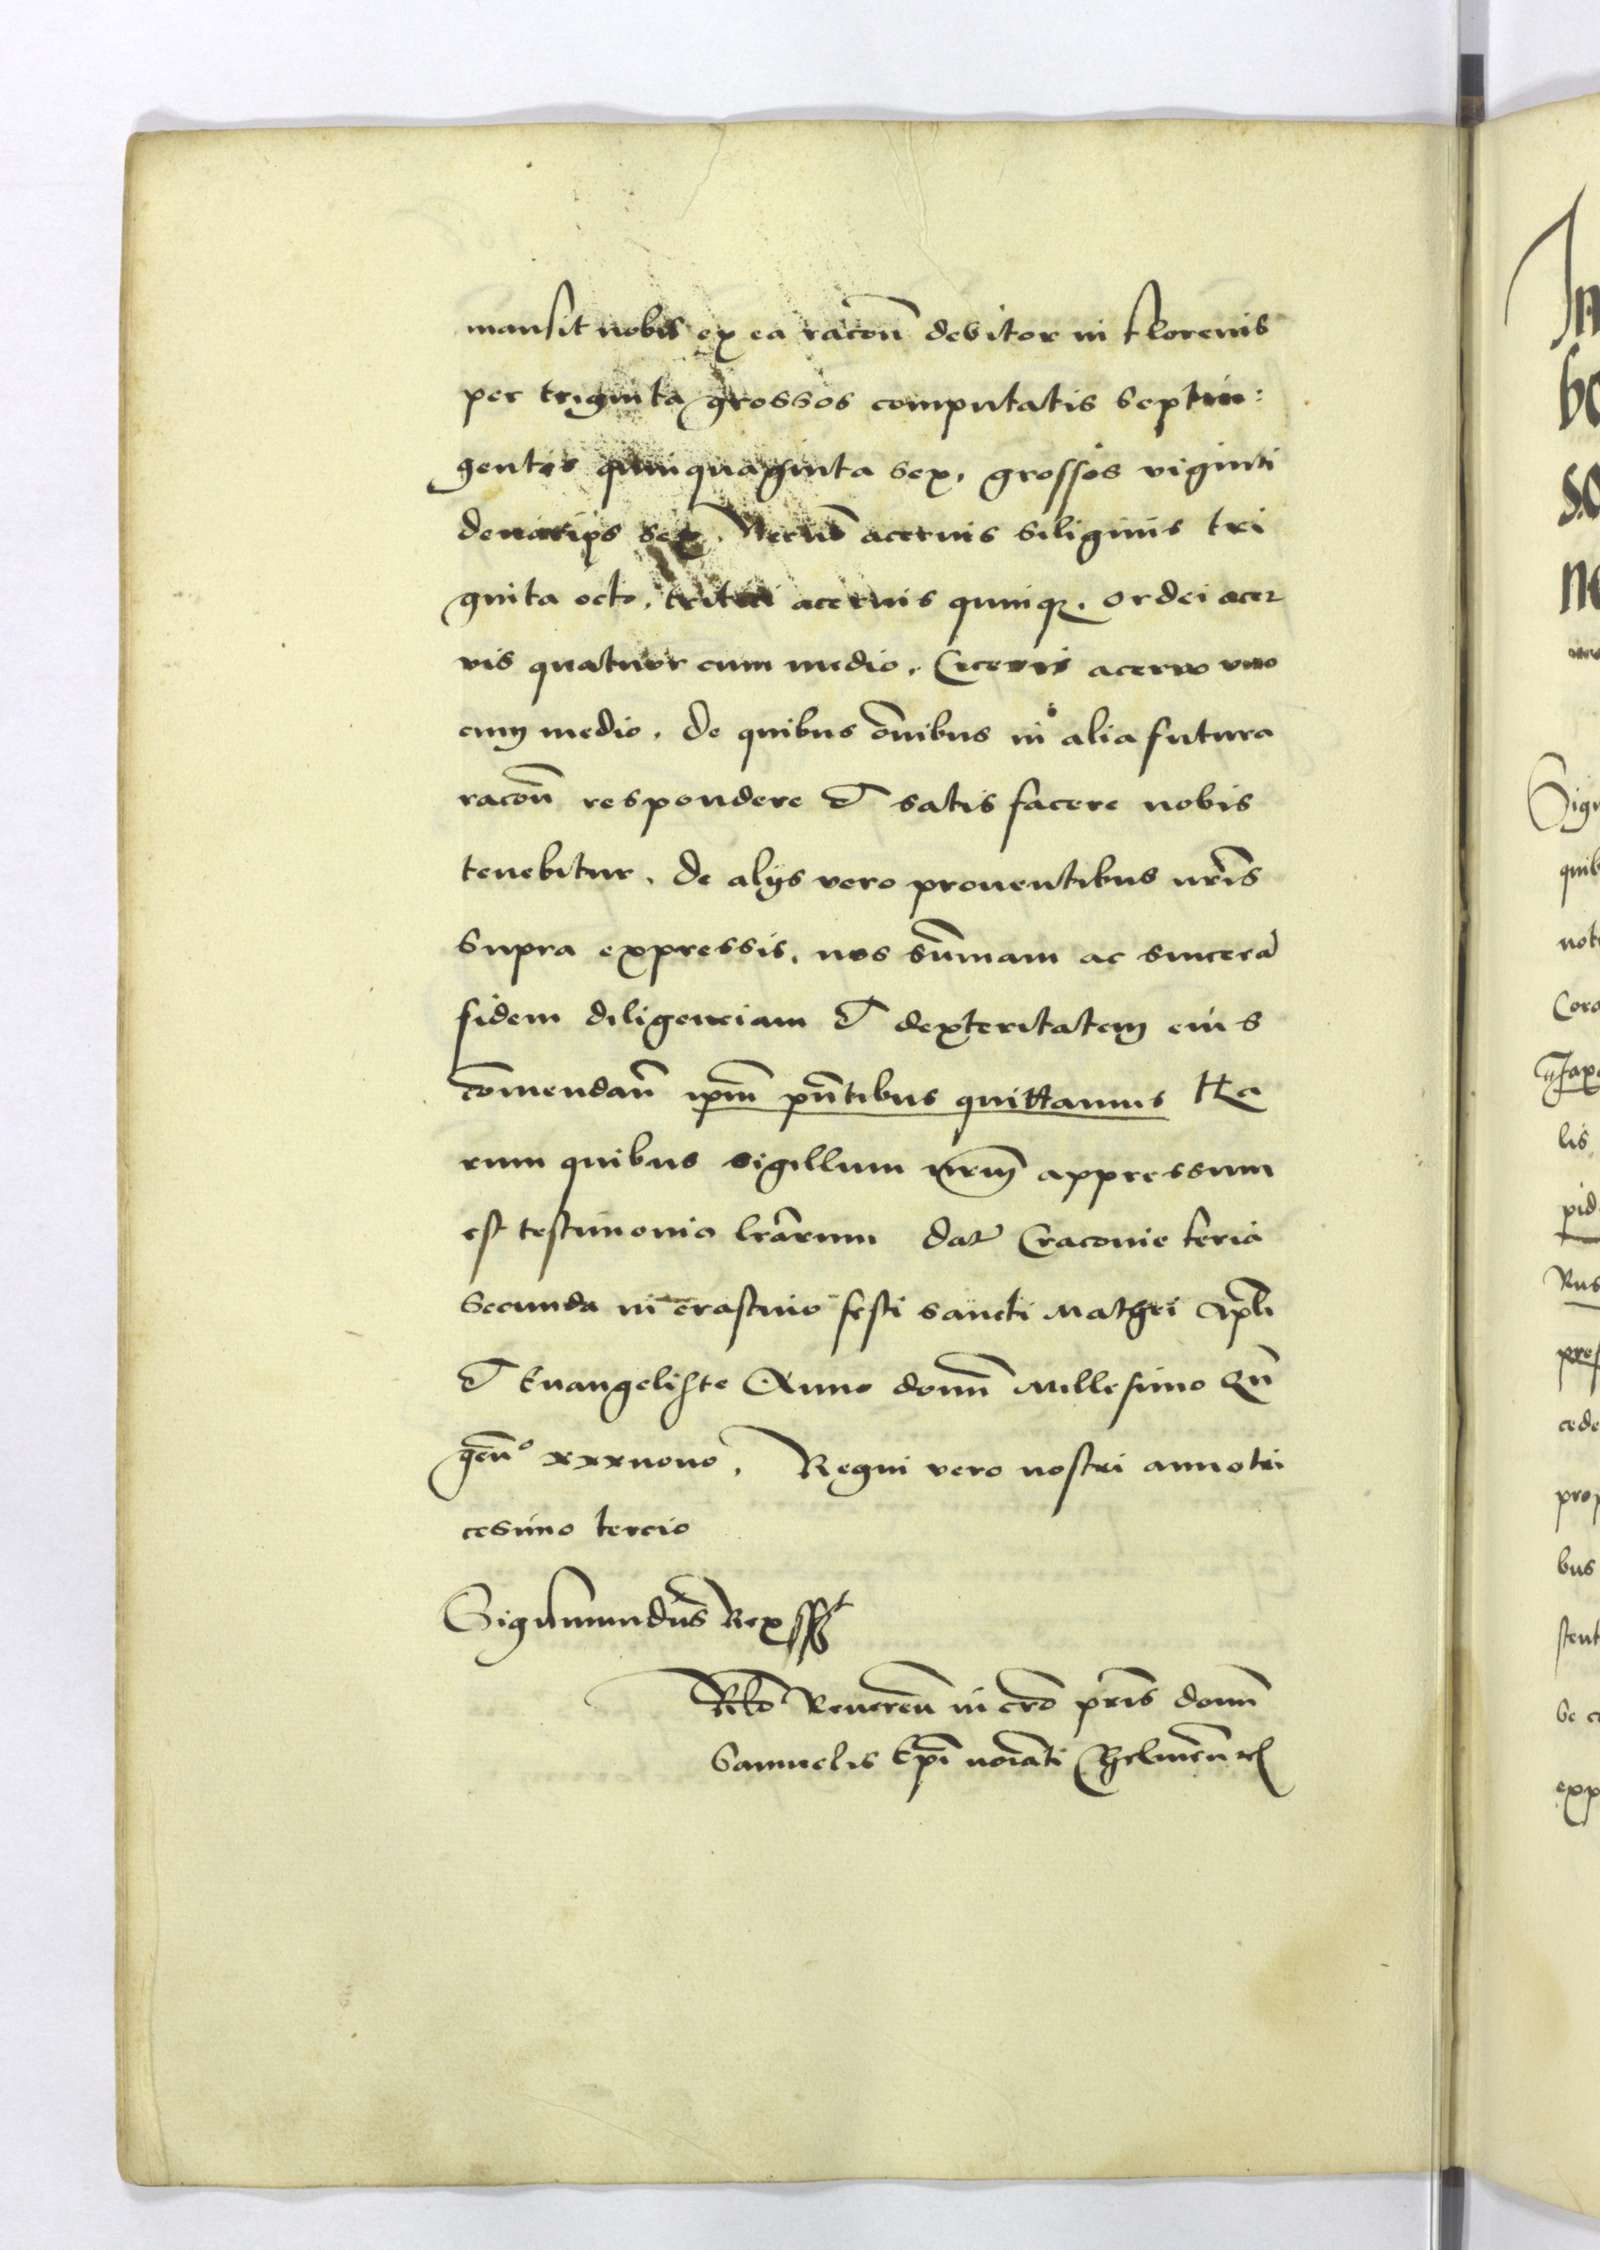 mansit nobis ex ea racoñ debitor in florenis
per triginta grossos computatis septin:
gentis quinquaginta sex, grossos viginti
denariis sex. Necnō acervis siliginis tri
ginta octo, tritici acervis quinqȝ, ordei acer
vis quatuor cum medio, Ciceris acervo vno
cum medio. De quibus oм̄ibus in alia futura
racoñ respondere et satis facere nobis
tenebitur. De alijs vero proventibus nr̄is
supra expressis, nos sum̄am ac sincerā
fidem diligenciam et dexteritatem eius
com̄endan̄ ip̄m pn̄tibus quittamus Ha
rum quibus sigillum nr̄m appressum
est testimonio lr̄arum Dat̄ Cracovie feria
Secunda in crastino festi sancti Mathei Apl̄i
et Evangeliste Anno domi̅ Millesimo Qui̅
gen̄º xxxnono, Regni vero nostri anno tri
cesimo tercio
Sigismundus Rex sst
Rlō Reveren̄ in cr̄o pr̄is domi̅
Samuelis Ep̄i no̅i̅ati Chelmen̄ rl
In
bo
so
no
Sigi
quib
not
Cora
Jaxa
lis
pid
Rus
pres
cede
prop
bus
stent
se c
exp